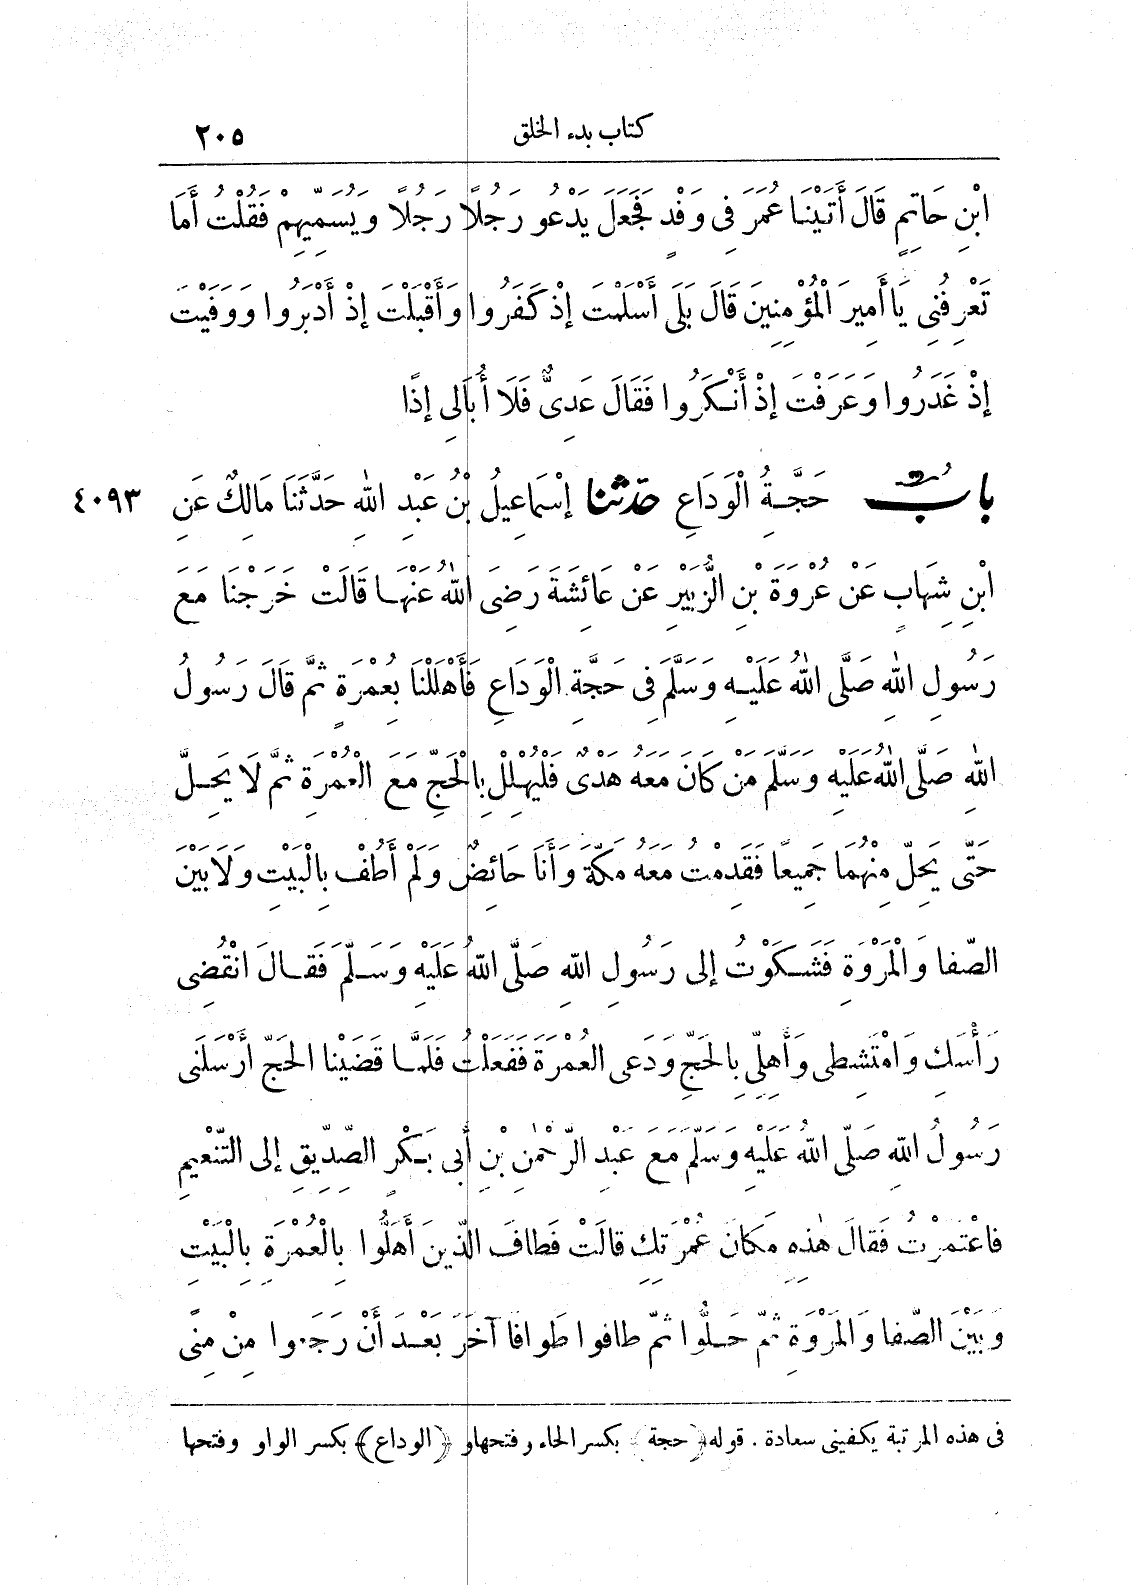 كتاب بدء الخلق ٢٠٥
ابْنِ حَاتِمٍ قَالَ أَتَيْنَا عُمَرَ فِى وَفْدٍ فَجَعَلَ يَدْعُو رَجُلًا رَجُلًا وَيُسَمِّيهِمْ فَقُلْتُ أَمَا
تَعْرِفُنِى يَا أَمِيرَ الْمُؤْمِنِينَ قَالَ بَلَى أَسْلَمْتَ إِذْ كَفَرُوا وَأَقْبَلْتَ إِذْ أَدْبَرُوا وَوَفَيْتَ
إِذْ غَدَرُوا وَعَرَفْتَ إِذْ أَنْكَرُوا فَقَالَ عَدِىٌّ فَلَا أُبَالِى إِذًا
بابُ حَجَّةِ الْوَدَاعِ حدثنا إِسْمَاعِيلُ بْنُ عَبْدِ اللهِ حَدَّثَنَا مَالِكٌ عَنِ ٤٠٩٣
ابْنِ شِهَابٍ عَنْ عُرْوَةَ بْنِ الزُّبَيْرِ عَنْ عَائِشَةَ رَضِىَ اللهُ عَنْهَا قَالَتْ خَرَجْنَا مَعَ
رَسُولِ اللهِ صَلَّى اللهُ عَلَيْهِ وَسَلَّمَ فِى حَجَّةِ الْوَدَاعِ فَأَهْلَلْنَا بِعُمْرَةٍ ثُمَّ قَالَ رَسُولُ
اللهِ صَلَّى اللهُ عَلَيْهِ وَسَلَّمَ مَنْ كَانَ مَعَهُ هَدْىٌ فَلْيُهْلِلْ بِالْحَجِّ مَعَ الْعُمْرَةِ ثُمَّ لَا يَحِلَّ
حَتَّى يَحِلَّ مِنْهُمَا جَمِيعًا فَقَدِمْتُ مَعَهُ مَكَّةَ وَأَنَا حَائِضٌ وَلَمْ أَطُفْ بِالْبَيْتِ وَلَا بَيْنَ
الصَّفا وَالْمَرْوَةِ فَشَكَوْتُ إلى رَسُولِ اللهِ صَلَّى اللهُ عَلَيْهِ وَسَلَّمَ فَقَالَ انْقُضِى
رَأْسَكِ وَامْتَشِطِى وَأَهِلِّى بِالحَجِّ وَدَعِى العُمْرَةَ فَفَعَلْتُ فَلَمَّا قَضَيْنا الحَجَّ أَرْسَلَنِى
رَسُولُ اللهِ صَلَّى اللهُ عَلَيْهِ وَسَلَّمَ مَعَ عَبْدِ الرَّحْمٰنِ بْنِ أَبِى بَكْرٍ الصِّدِّيقِ إلى التَّنْعِيمِ
فاعْتَمَرْتُ فَقالَ هٰذِهِ مَكانَ عُمْرَتِكِ قالَتْ فَطافَ الَّذِينَ أَهَلُّوا بِالْعُمْرَةِ بِالْبَيْتِ
وَبَيْنَ الصَّفا وَالمَرْوَةِ ثُمَّ حَلُّوا ثُمَّ طافوا طَوافًا آخَرَ بَعْدَ أَنْ رَجَعوا مِنْ مِنًى
فى هذه المرتبة يكفينى سعادة . قوله ﴿حجة﴾ بكسر الحاء وفتحها و ﴿الوداع﴾ بكسر الواو وفتحها